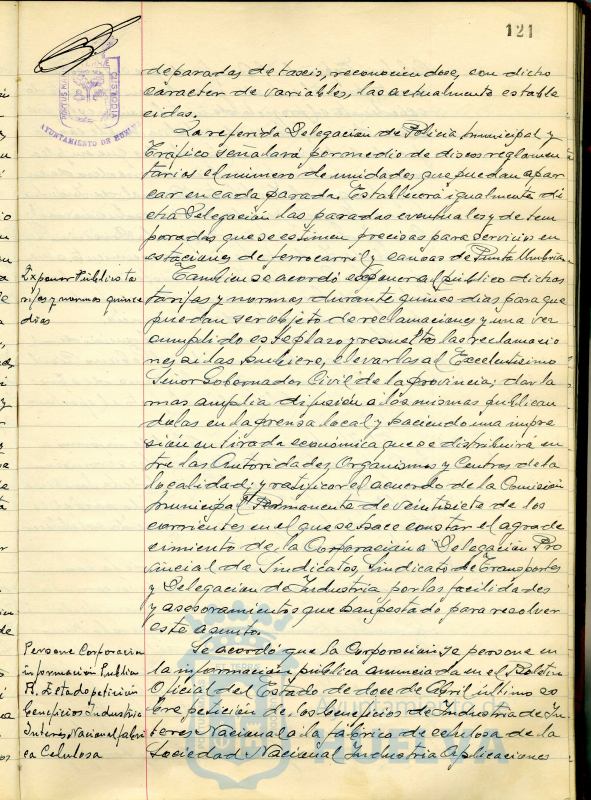 121
de paradas, de taxis, reconociendose, con dicho
carácter de variables, las actualmente estable
cidas.
La referida Delegación de Policia Municipal y
Tráfico señalará por medio de discos reglamen
tarios el número de unidades que puedan apar
car en cada parada. Establecerá igualmente di
cha Delegación las paradas eventuales y de tem
poradas que se estimen precisas para servicio en
estaciones de ferrocarril y canoas de Punta Umbria
Exponer Público ta
rifas y normas quince
dias
Tambien se acordó exponer al público dichas
tarifas y normas durante quince dias para que
puedan ser objeto de reclamaciones y una vez
cumplido este plazo y resueltas las reclamacio
nes si las hubiere, elevarlas al Excelentisimo
Señor Gobernador Civil de la provincia; dar la
mas amplia difusión a las mismas publican
dolas en la prensa local y haciendo una impre
sión en tirada económica que se distribuirá en
tre las Autoridades, Organismos y Centros de la
localidad; y ratificar el acuerdo de la Comisión
Municipal Permanente de veintisiete de los
corrientes en el que se hace constar el agrade
cimiento de la Corporación a Delegación Pro
vincial de Sindicatos, Sindicato de Transportes
y Delegación de Industria por las facilidades
y asesoramientos que han prestado para resolver
este asunto.
Persone Corporacion
información Publica
B. Estado petición
beneficios Industria
Interés Nacional fabri
ca Celulosa
Se acordó que la Corporación se persone en
la información pública anunciada en el Boletin
Oficial del Estado de doce de Abril último so
bre petición de los beneficios de Industria de In
terés Nacional a la fábrica de celulosa de la
Sociedad Nacional Industria Aplicaciones
AYUNTAMIENTO DE HUELVA
Ayuntamiento de
HUELVA